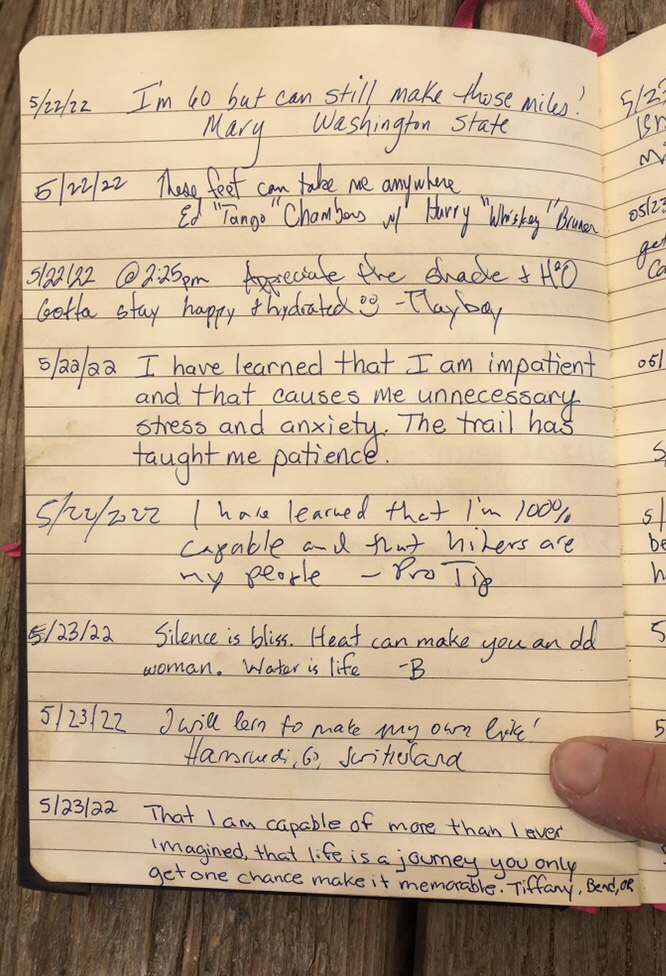 5/22/22 I'm 60 but can still make those miles!
Mary Washington State
5/22/22 These feet can take me anywhere
Ed "Tango" Chambers w/ Harry "Whiskey" Bruner
5/22/22 @ 2:25pm Appreciate the shade & H2O
Gotta stay happy & hydrated - Playboy
5/22/22 I have learned that I am impatient
and that causes me unnecessary
stress and anxiety. The trail has
taught me patience.
5/22/2022 I have learned that I'm 100%
capable and that hikers are
my people - Pro Tip
5/23/22 Silence is bliss. Heat can make you an odd
woman. Water is life -B
5/23/22 I will lern to make my own
Hansruedi, Switzerland
5/23/22 That I am capable of more than I ever
imagined, that life is a journey you only
get one chance make it memorable. Tiffany, Bend, OR
5/23
05/23
ge
Ca
05/
S
5/
be
h
5
5